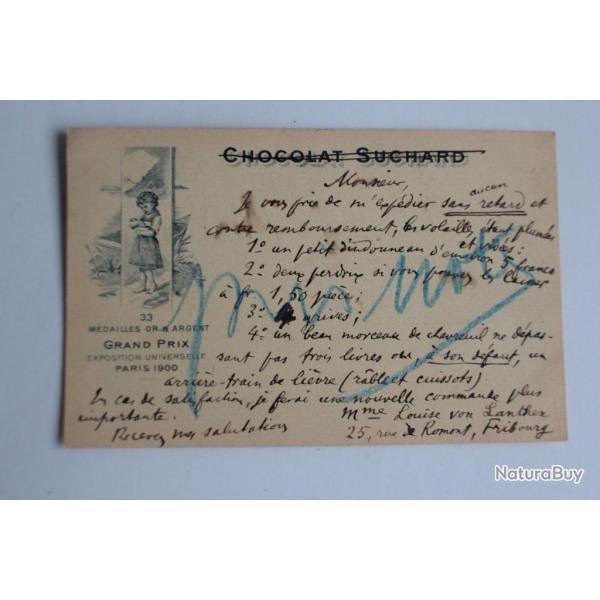 CHOCOLAT SUCHARD
Monsieur,
aucun
Je vous prie de m'expédier sans retard et
contre remboursement, les volailles, étant plumées
et vidées :
1° un petit dindonneau d'environ 5 francs
2° deux perdrix si vous pouvez les laisser
à fr. 1,50 pièce ;
3° 4 grives ;
4° un beau morceau de chevreuil ne dépas-
sant pas trois livres ou, à son défaut, un
arrière-train de lièvre (râble et cuissots)
En cas de satisfaction, je ferai une nouvelle commande plus
importante.
Mme Louise von Lanthen
Recevez mes salutations
25, rue de Romont, Fribourg
33
MÉDAILLES OR & ARGENT
GRAND PRIX
EXPOSITION UNIVERSELLE
PARIS 1900
NaturaBuy